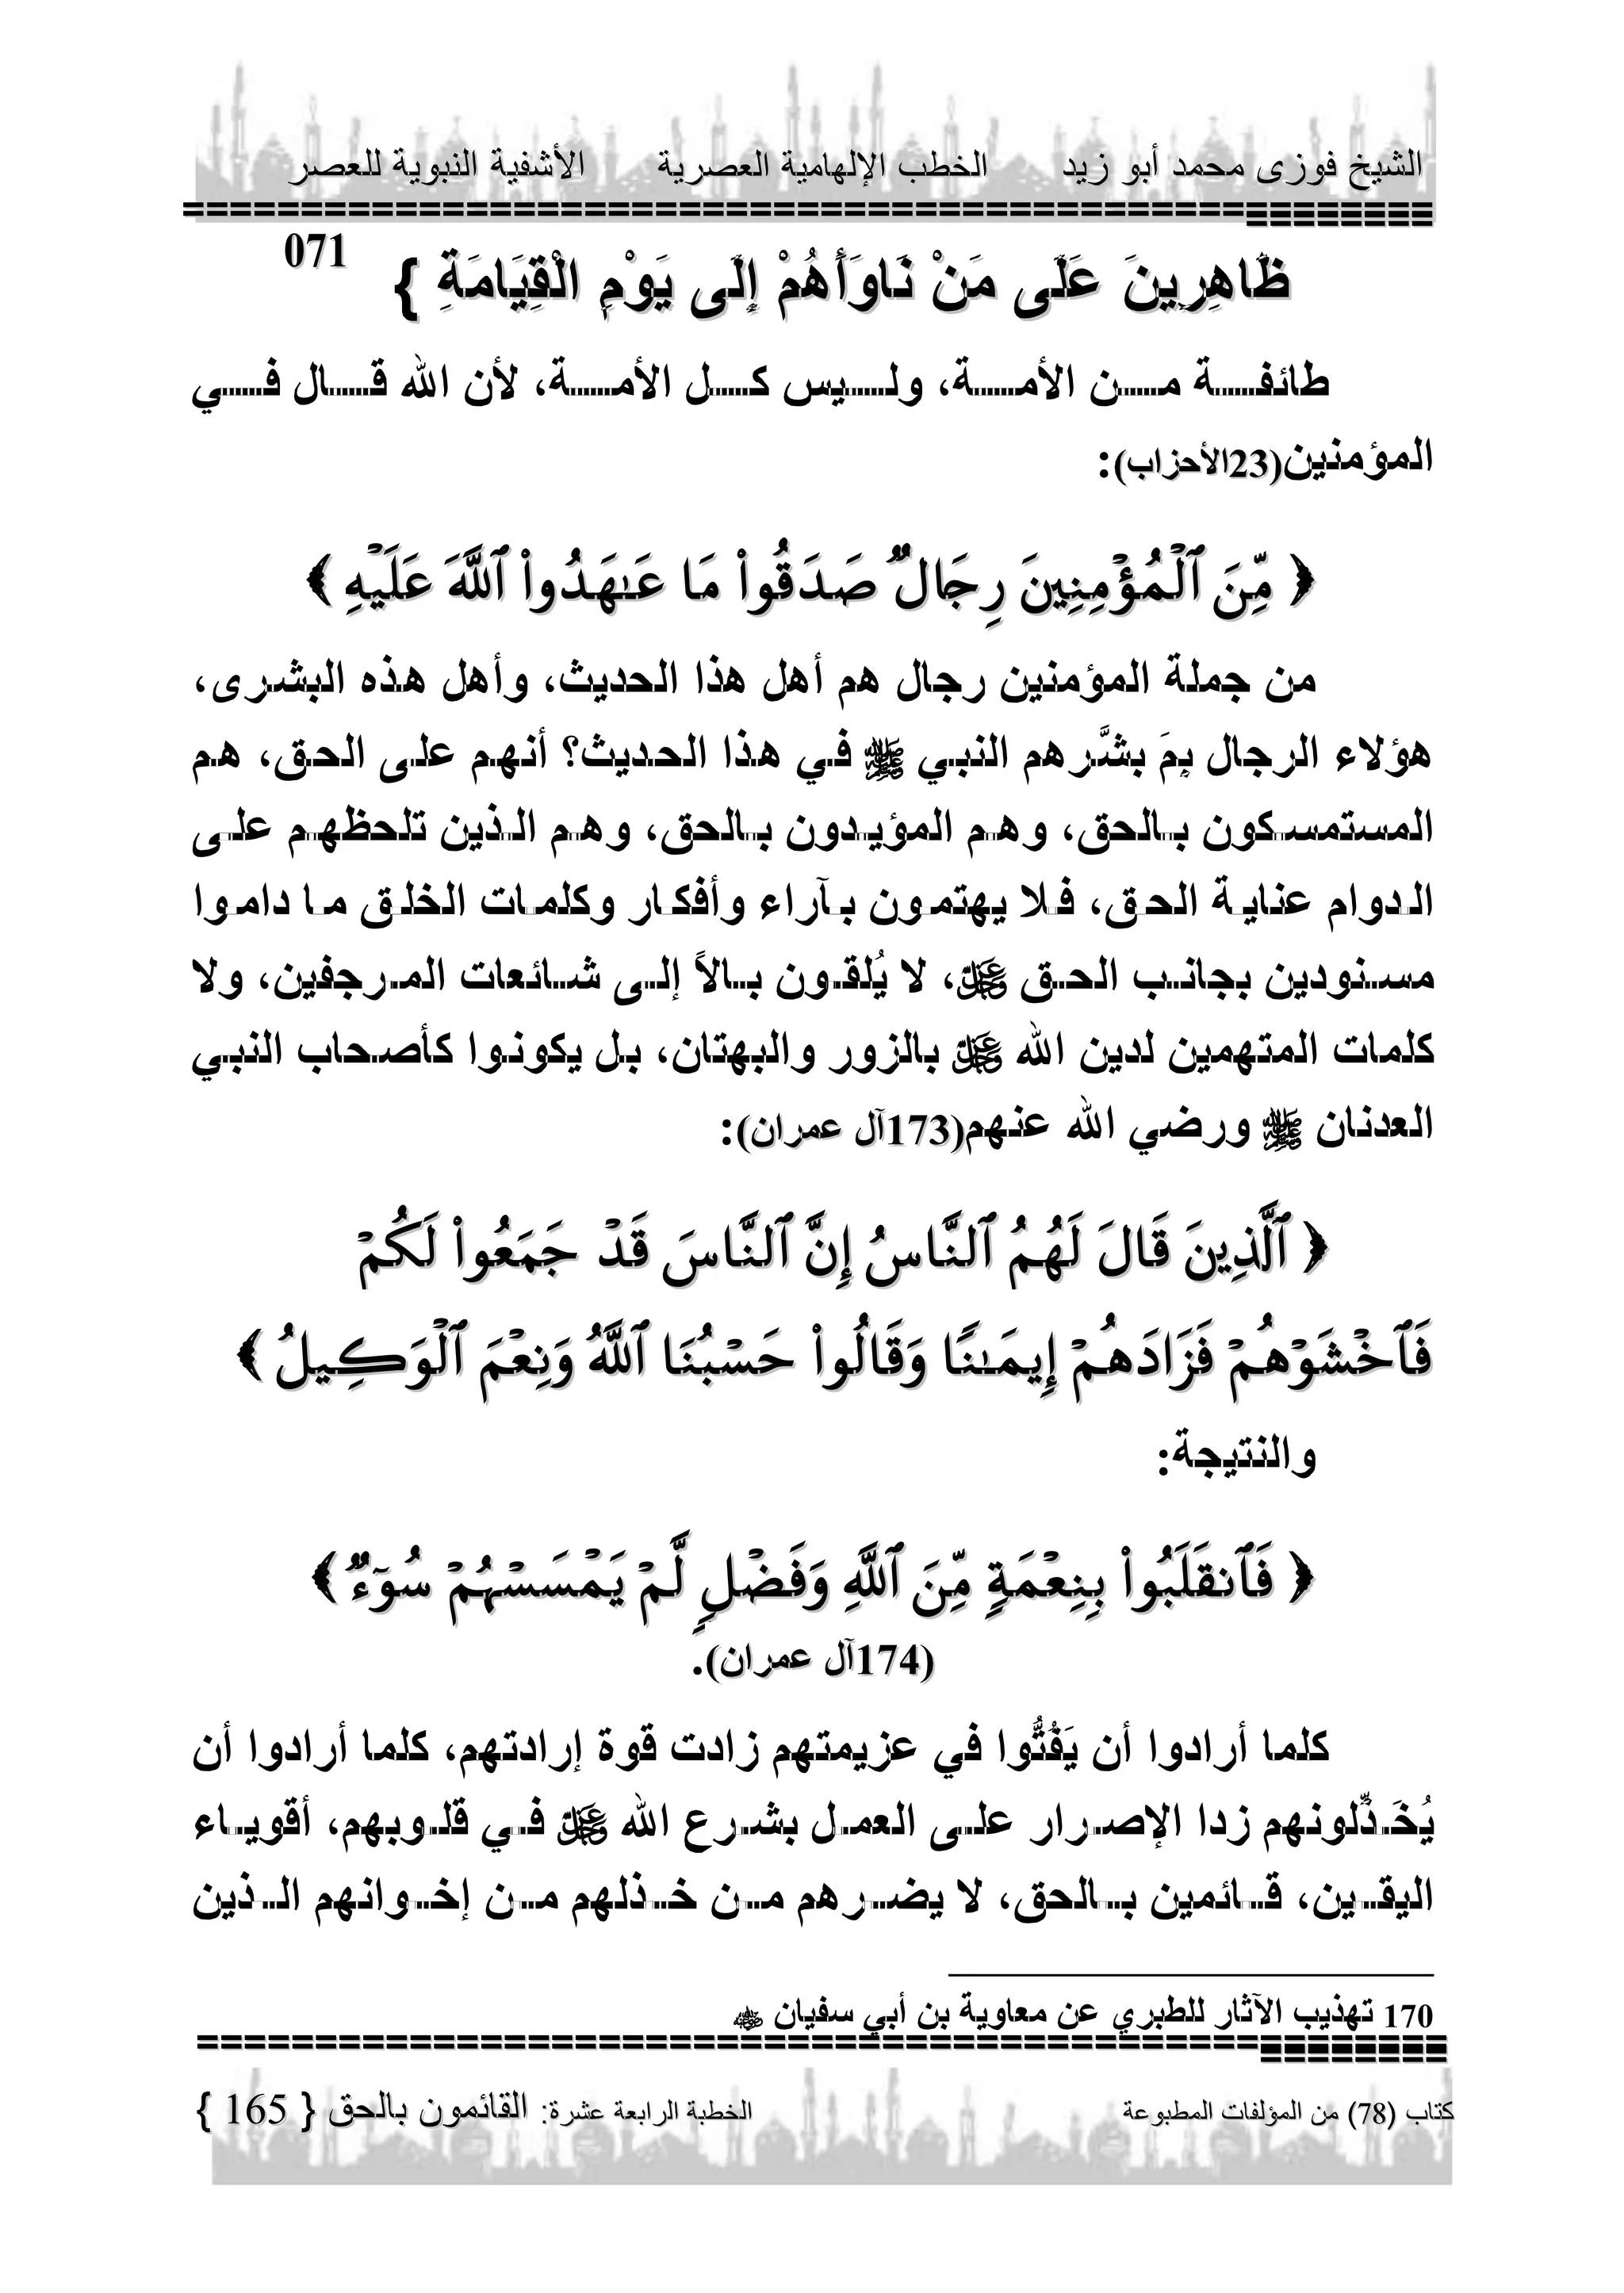 الشيخ فوزى محمد أبو زيد الخطب الإلهامية العصرية الأشفية النبوية للعصر
ظَاهِرِينَ عَلَى مَنْ نَاوَأَهُمْ إِلَى يَوْمِ الْقِيَامَةِ } 071
طائفة من الأمة، وليس كل الأمة، لأن الله قال في
المؤمنين(23الأحزاب):
﴿ مِّنَ ٱلْمُؤْمِنِينَ رِجَالٌ صَدَقُوا۟ مَا عَـٰهَدُوا۟ ٱللَّهَ عَلَيْهِ ﴾
من جملة المؤمنين رجال هم أهل هذا الحديث، وأهل هذه البشرى،
هؤلاء الرجال بِمَ بشَّرهم النبي ﷺ في هذا الحديث؟ أنهم على الحق، هم
المستمسكون بالحق، وهم المؤيدون بالحق، وهم الذين تلحظهم على
الدوام عناية الحق، فلا يهتمون بآراء وأفكار وكلمات الخلق ما داموا
مسنودين بجانب الحق عز وجل، لا يُلقون بالاً إلى شائعات المرجفين، ولا
كلمات المتهمين لدين الله عز وجل بالزور والبهتان، بل يكونوا كأصحاب النبي
العدنان ﷺ ورضي الله عنهم(173آل عمران):
﴿ ٱلَّذِينَ قَالَ لَهُمُ ٱلنَّاسُ إِنَّ ٱلنَّاسَ قَدْ جَمَعُوا۟ لَكُمْ
فَٱخْشَوْهُمْ فَزَادَهُمْ إِيمَـٰنًا وَقَالُوا۟ حَسْبُنَا ٱللَّهُ وَنِعْمَ ٱلْوَكِيلُ ﴾
والنتيجة:
﴿ فَٱنقَلَبُوا۟ بِنِعْمَةٍ مِّنَ ٱللَّهِ وَفَضْلٍ لَّمْ يَمْسَسْهُمْ سُوٓءٌ ﴾
(174آل عمران).
كلما أرادوا أن يَفُتُّوا في عزيمتهم زادت قوة إرادتهم، كلما أرادوا أن
يُخَذِّلونهم زدا الإصرار على العمل بشرع الله عز وجل في قلوبهم، أقوياء
اليقين، قائمين بالحق، لا يضرهم من خذلهم من إخوانهم الذين
170 تهذيب الآثار للطبري عن معاوية بن أبي سفيان رضي الله عنه
كتاب (78) من المؤلفات المطبوعة الخطبة الرابعة عشرة: القائمون بالحق { 165 }